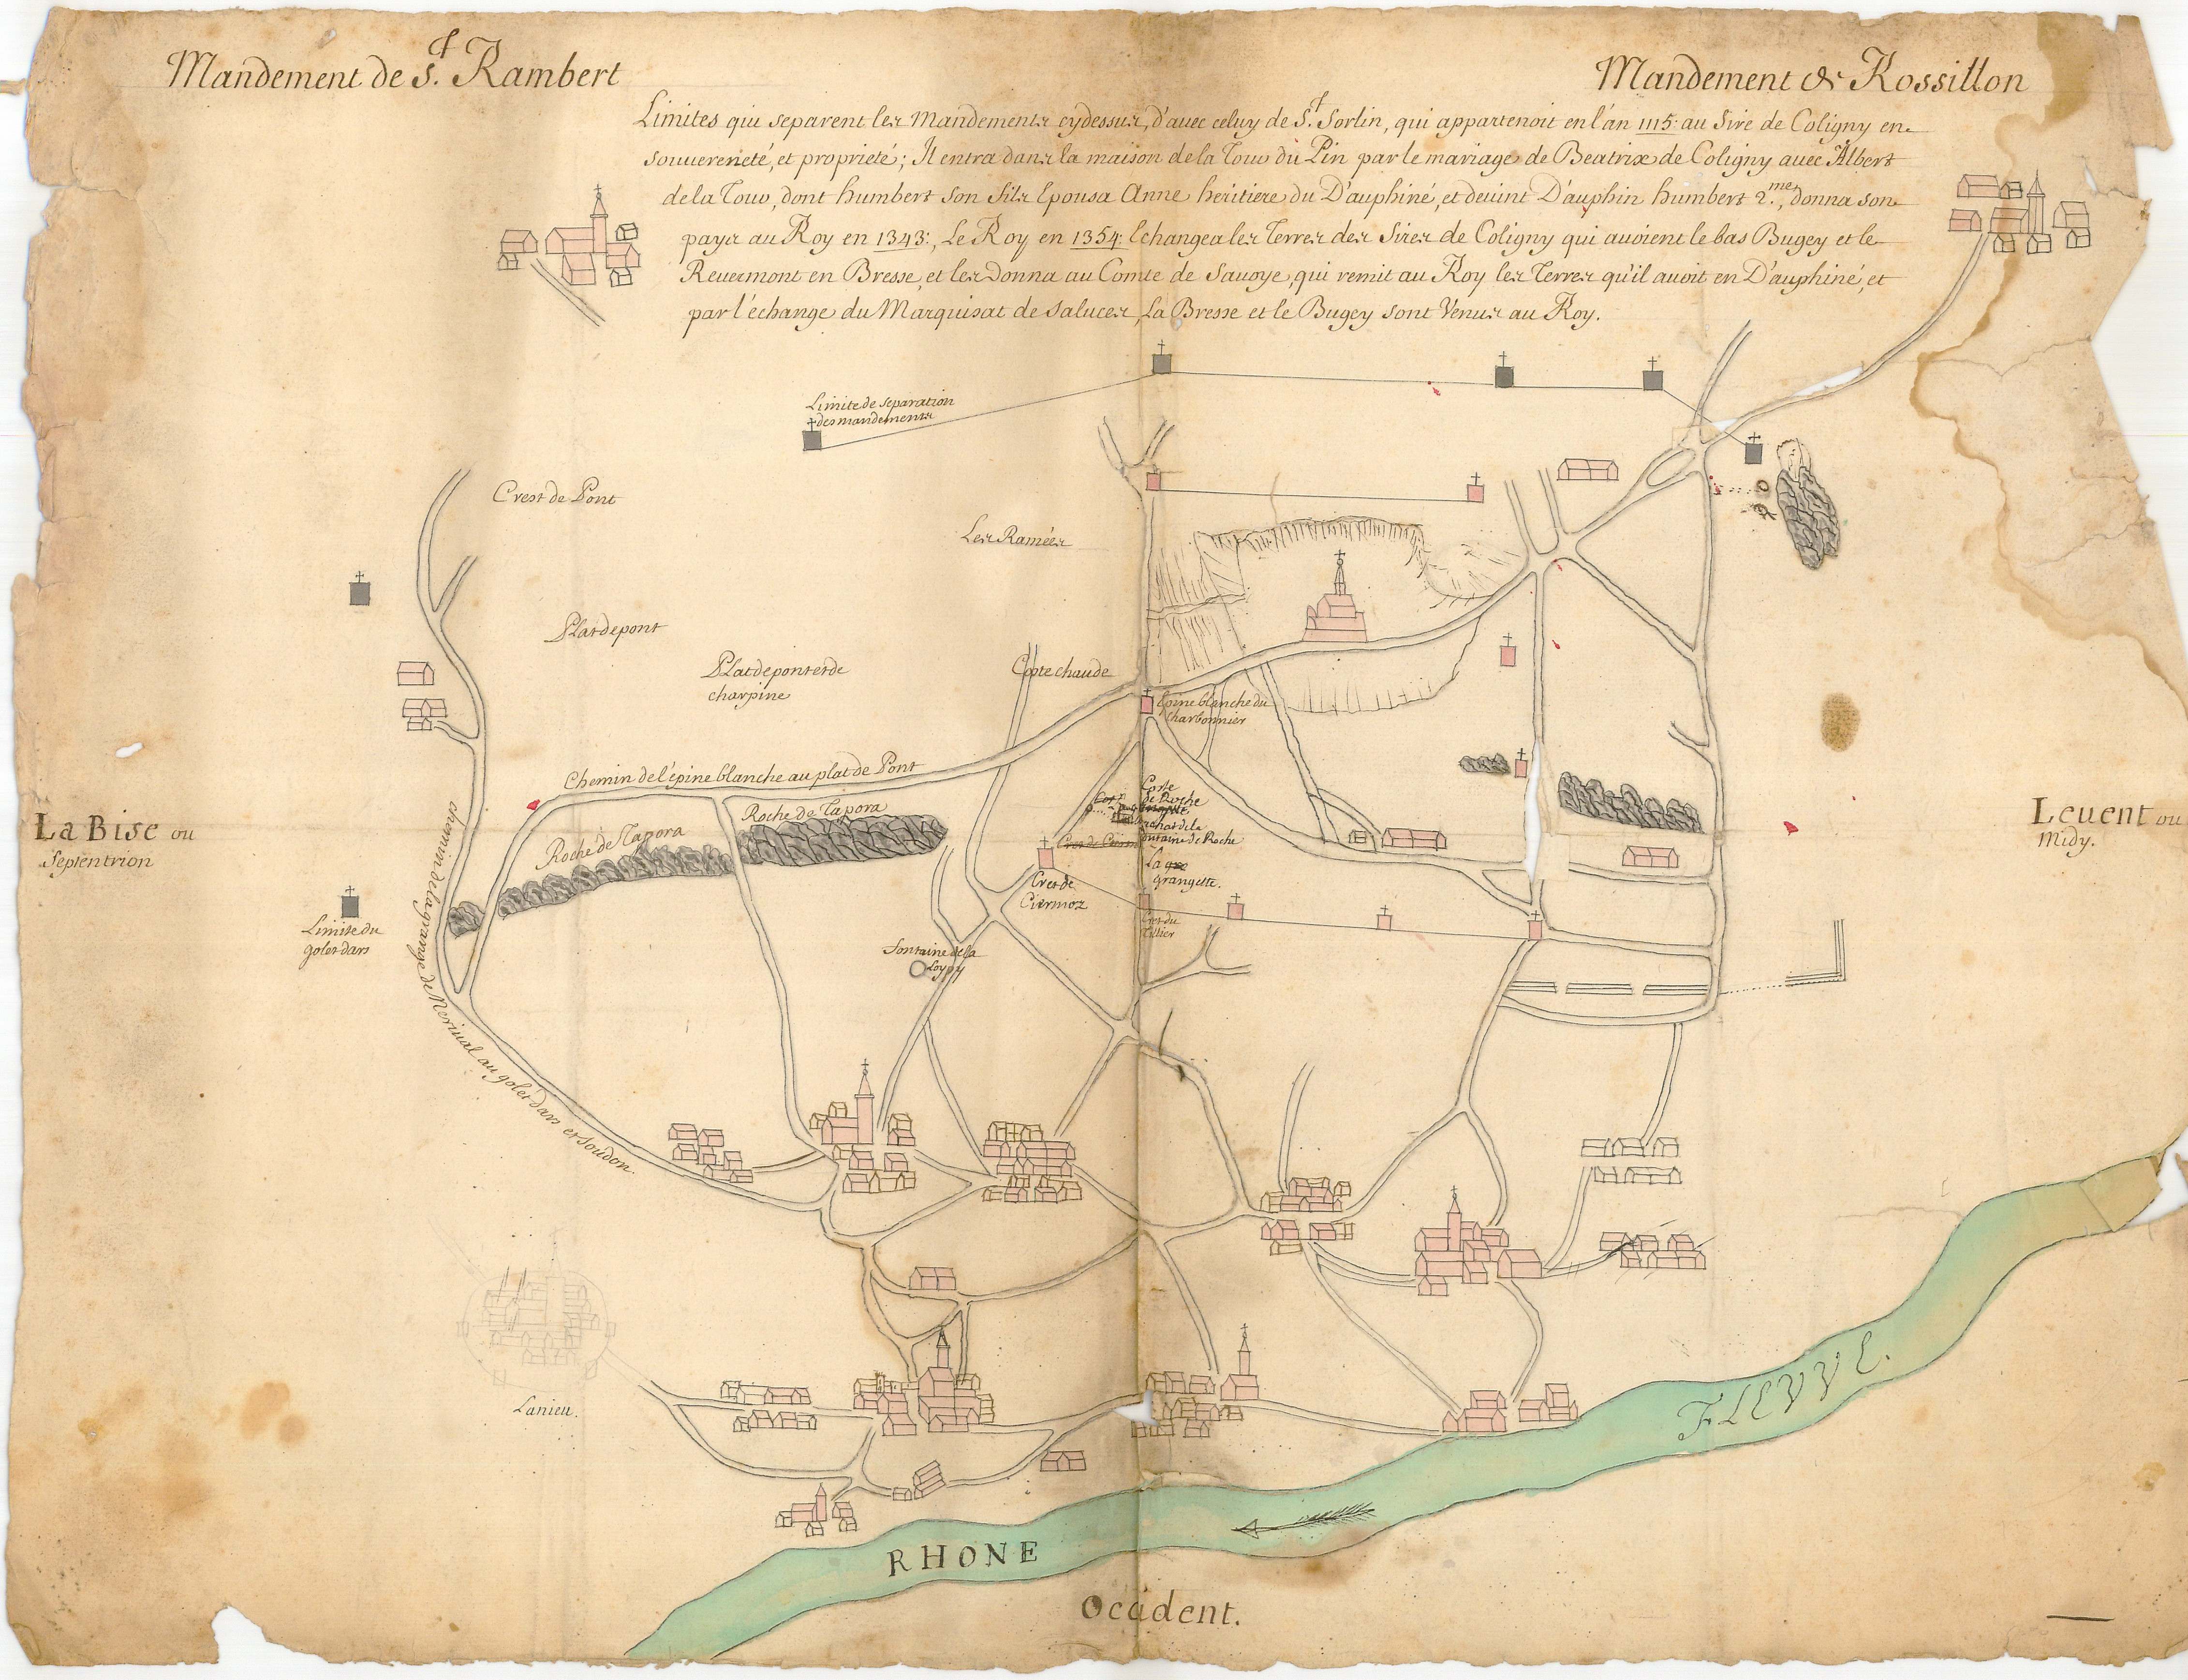 Mandement de St. Rambert
Mandement de Rossillon
Limites qui separent les Mandements cydessus, d'avec celuy de St. Sorlin, qui appartenoit en l'an 1115: au Sire de Coligny en
souvereneté, et proprieté; Il entra dans la maison de la Tour du Pin par le mariage de Beatrix de Coligny avec Albert
de la Tour, dont humbert son fils Epousa Anne heritiere du D'auphiné, et devint D'auphin humbert 2.me, donna son
pays au Roy en 1343:, Le Roy en 1354: Echangea les Terres des Sires de Coligny qui avoient le bas Bugey et le
Revermont en Bresse, et les donna au Comte de Savoye, qui remit au Roy les Terres qu'il avoit en D'auphiné, et
par l'échange du Marquisat de saluces, La Bresse et le Bugey sont Venus au Roy.
Limite de separation
des mandements
Crest de Pont
Les Ramées
Plat de pont
Plat de pont et de
charpine
Coste chaude
Epine blanche du
Charbonnier
Chemin de l'épine blanche au plat de Pont
Roche de Tapora
Roche de Tapora
Coste
de Roche
fontaine de Roche
La
Grangette.
Crest de
Ciermoz
Crest du
Tillier
La Bise ou
Septentrion
Levent ou
Midy.
Limite du
golet dars
chemin de la grange de Merival au golet dars et soudon
fontaine de la
Lanieu.
FLEVVE.
RHONE
Occident.